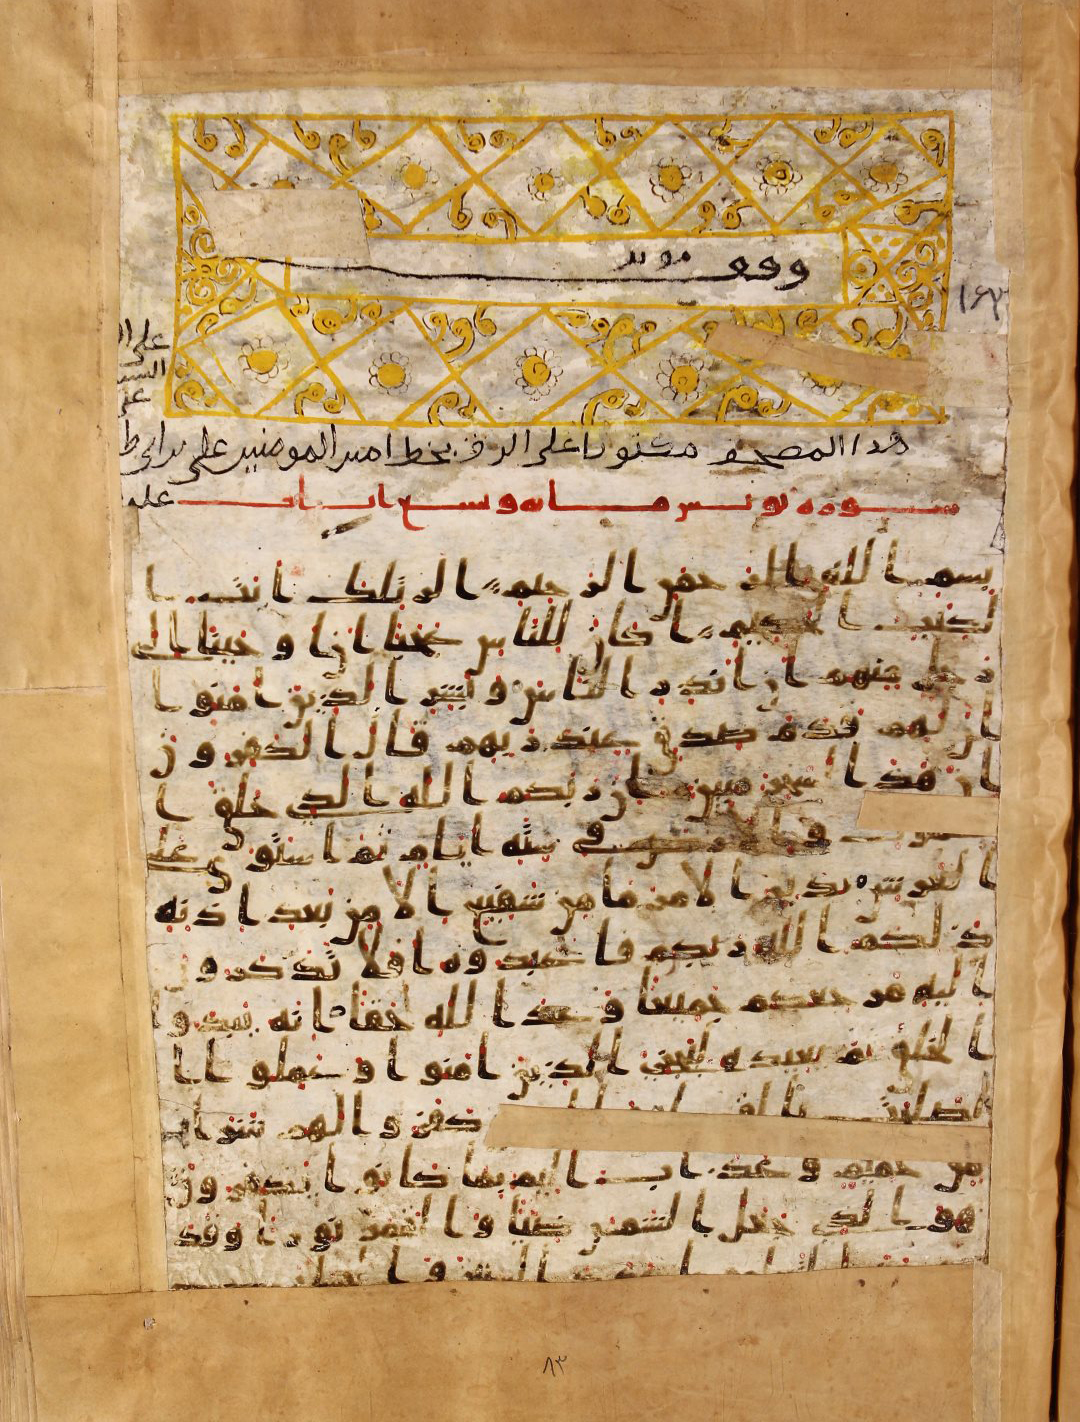 وقف مؤبد
١٤٣
على ا
هذا المصحف مكتوبا على الرق بخط امير المومنين على بن ابى ط
سورة يونس مائه وتسع ايات
بسم الله الرحمن الرحيم الر تلك ايت ا
لكتب الحكيم اكان للناس عجبا ان ا وحينا الى
رجل منهم ان انذر الناس وبشر الذين امنوا ا
ن لهم قدم صدق عند ربهم قال الكفرون
ان هذا لسحر مبين ان ربكم الله الذي خلق ا
لسموت والارض في سته ايام ثم استوى على
العرش يدبر الامر ما من شفيع الا من بعد اذنه
ذلكم الله ربكم فاعبدوه افلا تذكرون
اليه مرجعكم جميعا وعد الله حقا انه يبدوا
الخلق ثم يعيده ليجزي الذين امنوا وعملوا ا
لصلحت كفروا لهم شراب
من حميم وعذاب اليم بما كانوا يكفرون
هو الذي جعل الشمس ضيا والقمر نورا وقد
٨٣